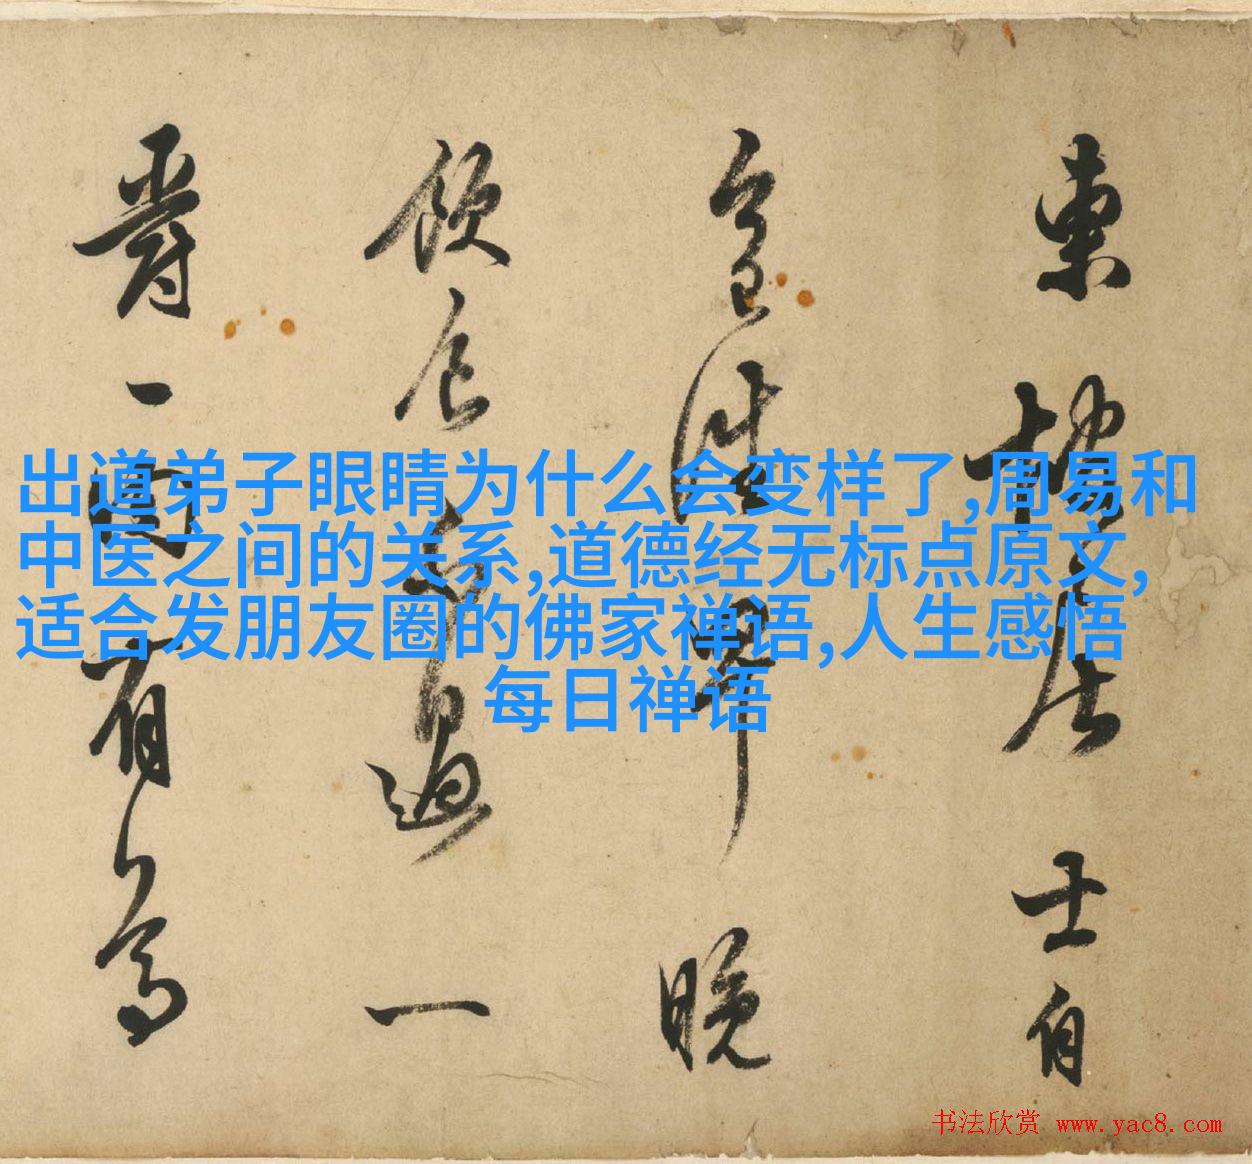 出道弟子眼睛为什么会变样了,周易和
中医之间的关系,道德经无标点原文,
适合发朋友圈的佛家禅语,人生感悟
每日禅语
東坡居士自
晚
飲食不過一
爵一肉有
书法欣赏 www.yac8.com